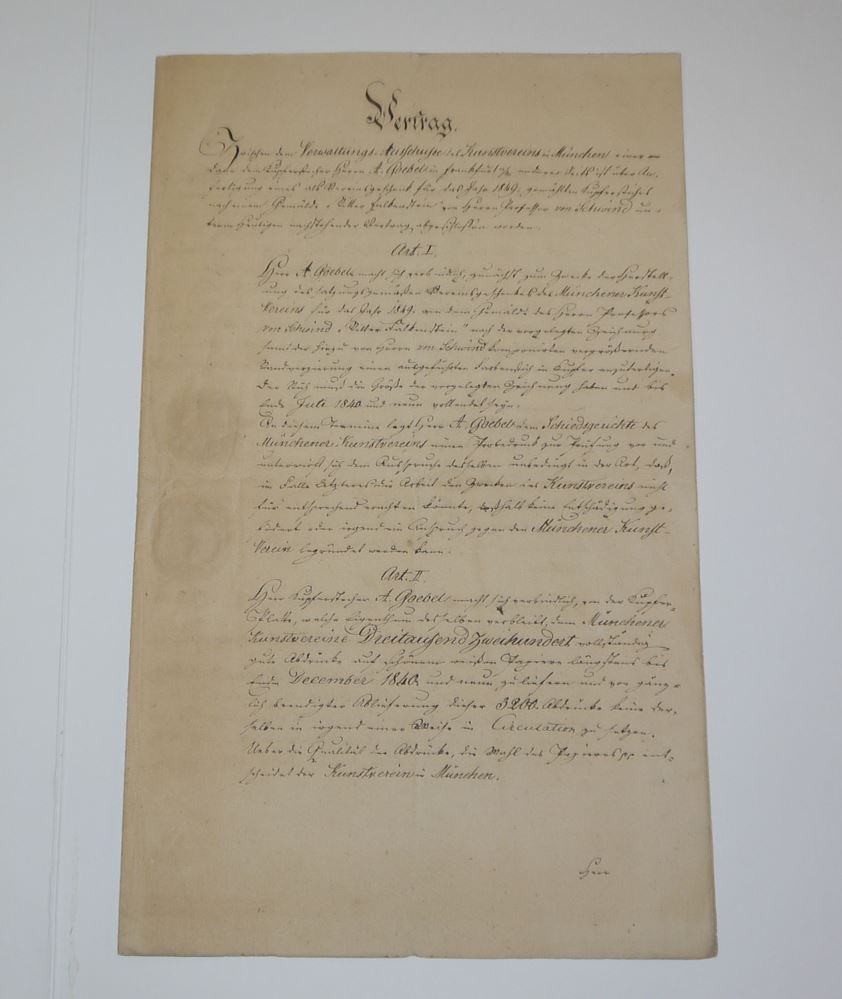 Vertrag.
Zwischen dem Verwaltungs-Ausschuße des Kunstvereins in München einer und
dann dem Kupferstecher Herrn A. Goebel in Frankfurt a/M. anderer Seits ist über An-
fertigung eines als Vereinsgeschenk für das Jahr 1849. gewählten Kupferstiches
nach einem Gemälde „Ritter Falkenstein" von Herrn Professor von Schwind un-
term Heutigen nachstehender Vertrag abgeschlossen worden.
Art. I.
Herr A. Goebel macht sich verbindlich, zunächst zum Zwecke der Herstell-
ung des satzungsgemäßen Vereinsgeschenkes des Münchener Kunst-
Vereins für das Jahr 1849. von dem Gemälde des Herrn Professors
von Schwind „Ritter Falkenstein" nach der vorgelegten Zeichnung
sammt der hiezu von Herrn von Schwind komponirten
Randverzierung einen ausgeführten in Kupfer anzufertigen.
Der Stich muß die Größe der vorgelegten Zeichnung haben und bis
Ende Juli 1840 und neun vollendet seyn.
An diesem Termine legt Herr A. Goebel dem Schiedsgerichte des
Münchener Kunstvereins einen Probedruck zur Prüfung vor und
unterwirft sich dem Ausspruche desselben unbedingt in der Art, daß,
im Falle Letzteres die Arbeit den Zwecken des Kunstvereins nicht
für entsprechend erachten könnte, deßhalb keine Entschädigung ge-
fordert oder irgend ein Anspruch gegen den Münchener Kunst-
Verein begründet werden kann.
Art. II.
Herr Kupferstecher A. Goebel macht sich verbindlich, von der Kupfer-
Platte, welche Eigenthum desselben verbleibt, dem Münchener
Kunstvereine Dreitausend Zweihundert vollständig
gute Abdrücke auf schönem weißen Papiere längstens bis
Ende December 1840 und neun zu liefern und vor gänz-
lich beendigter Ablieferung dieser 3200. Abdrücke keine der-
selben in irgend einer Weise in Circulation zu setzen.
Ueber die Qualität der Abdrücke, die Wahl des Papieres pp ent-
scheidet der Kunstverein in München.
Herr